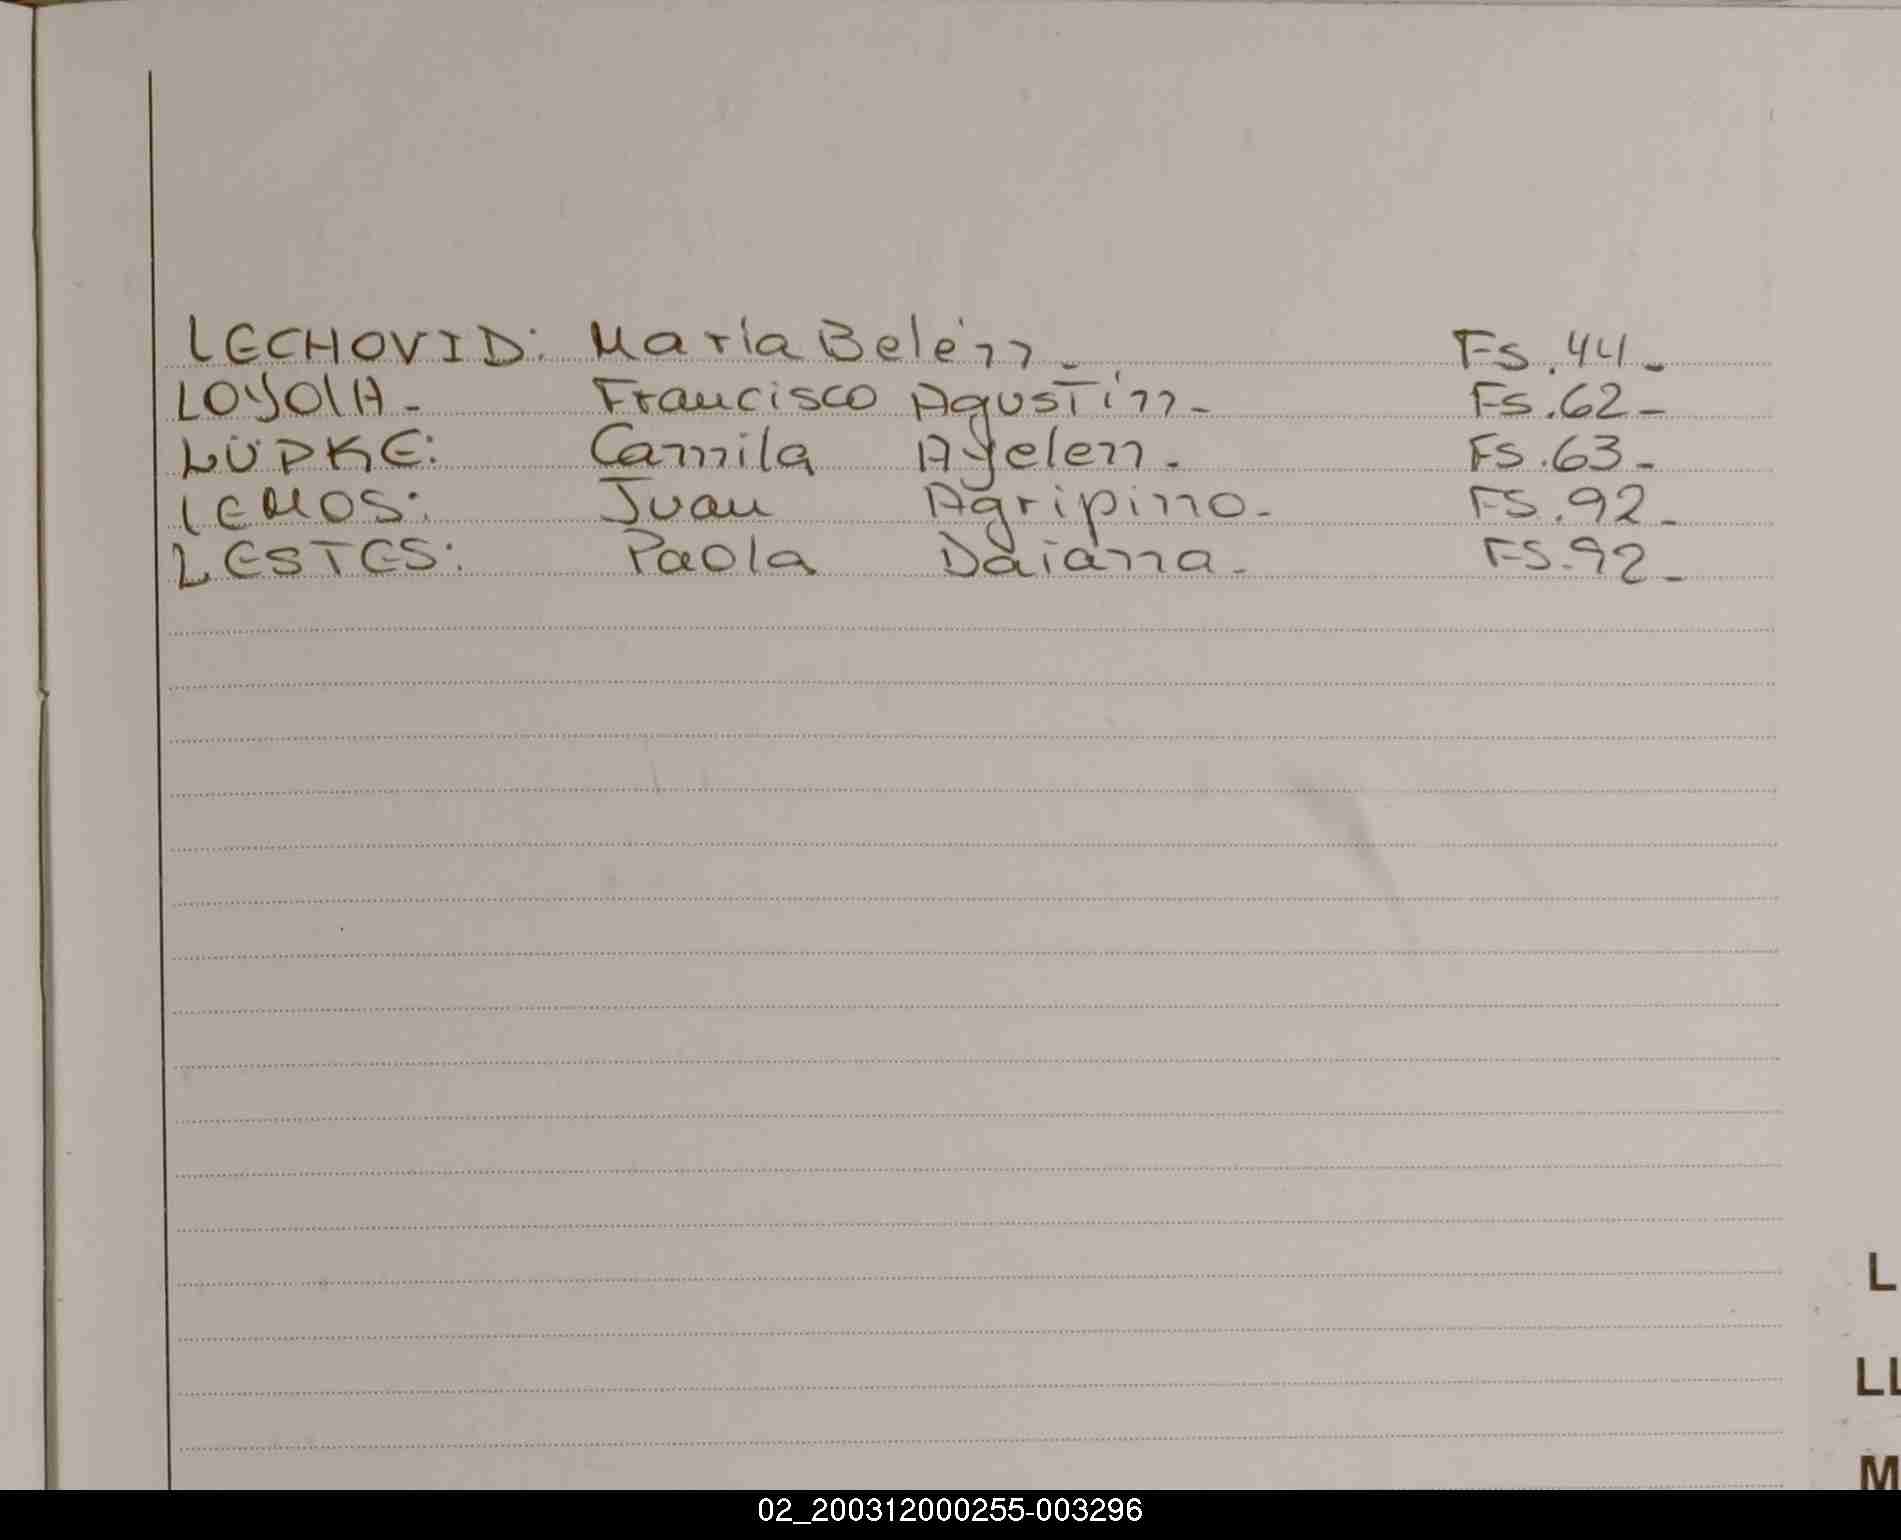 LECHOVID: María Belén - Fs. 44 -
LOYOLA - Francisco Agustín - Fs. 62 -
LÜDKE: Camila Ayelen - Fs. 63 -
LEMOS: Juan Agripino - Fs. 92 -
LESTES: Paola Daiana - Fs. 92 -
L
LL
M
02_200312000255-003296